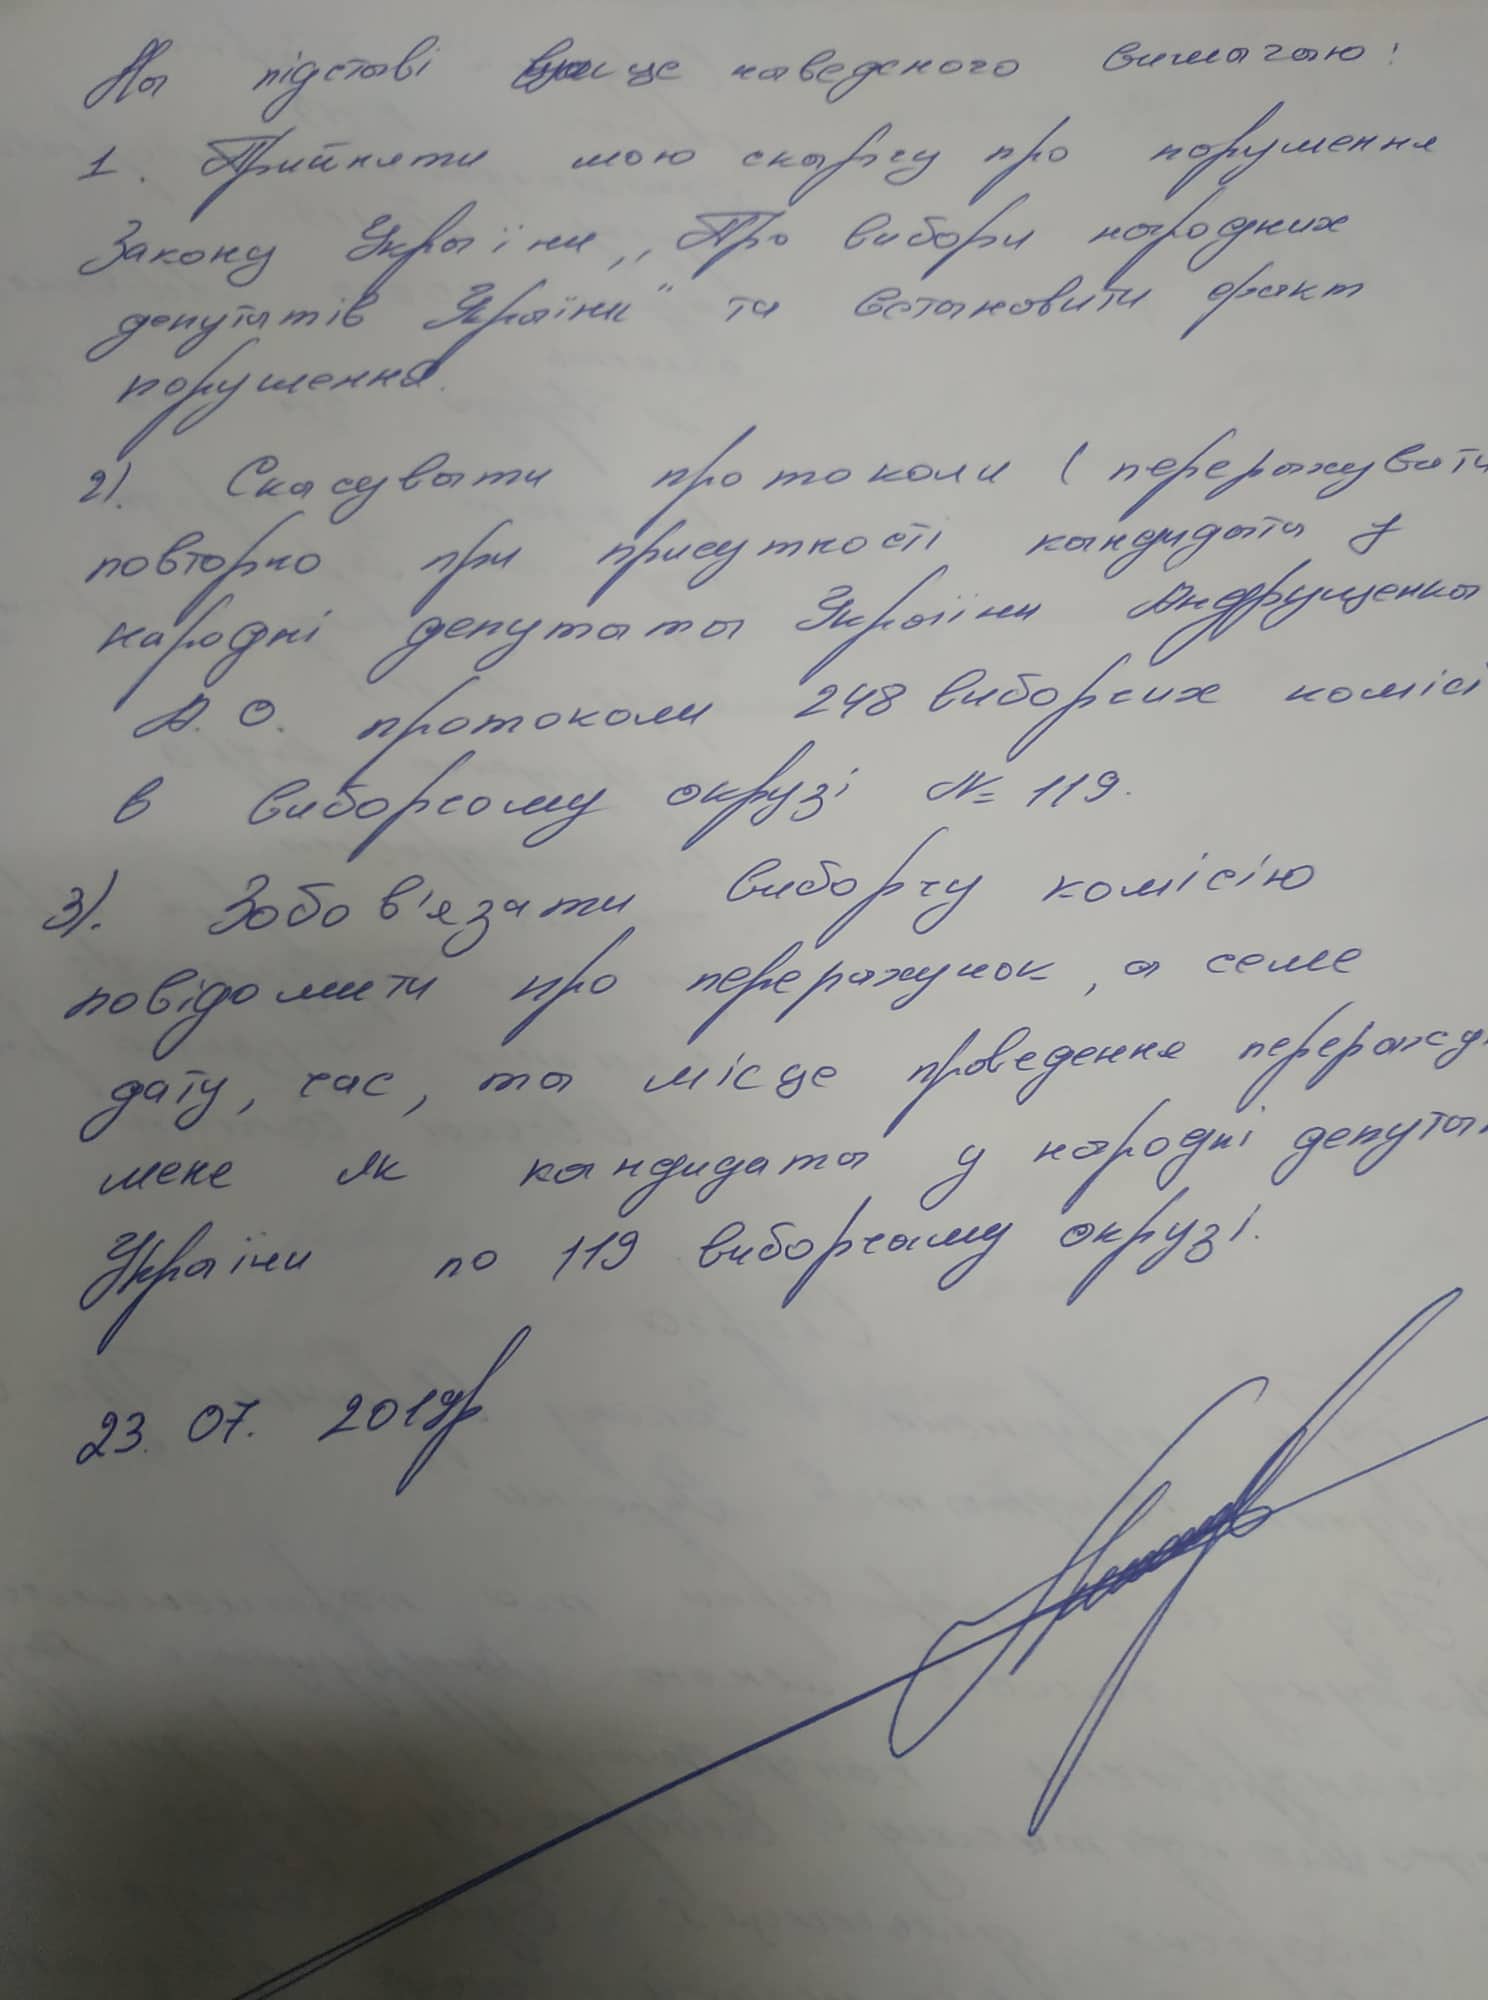 На підставі вище наведеного вимагаю:
1. Прийняти мою скаргу про порушення
Закону України „Про вибори народних
депутатів України" та встановити факт
порушення.
2). Скасувати протоколи (перерахувати
повторно при присутності кандидата у
народні депутата України Андрущенка
А. О. протоколи 248 виборчих комісі
в виборчому окрузі № 119.
3). Зобов'язати виборчу комісію
повідомити про перерахунок, а семе
дату, час, та місце проведення перераху
мене як кандидата у народні депутат
України по 119 виборчому окрузі.
23. 07. 2019р